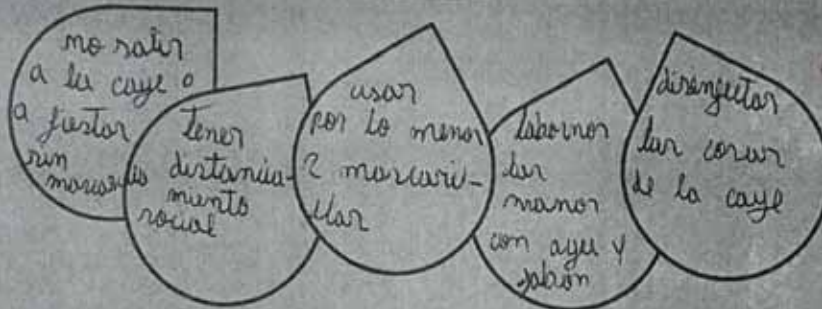 no salir
a la caye o
a fiestar
sin mascarillas
tener
distancia-
miento
social
usar
por lo menos
2 mascari-
llas
labarnos
las
manos
con agua y
jabon
disinfectar
las cosas
de la caye